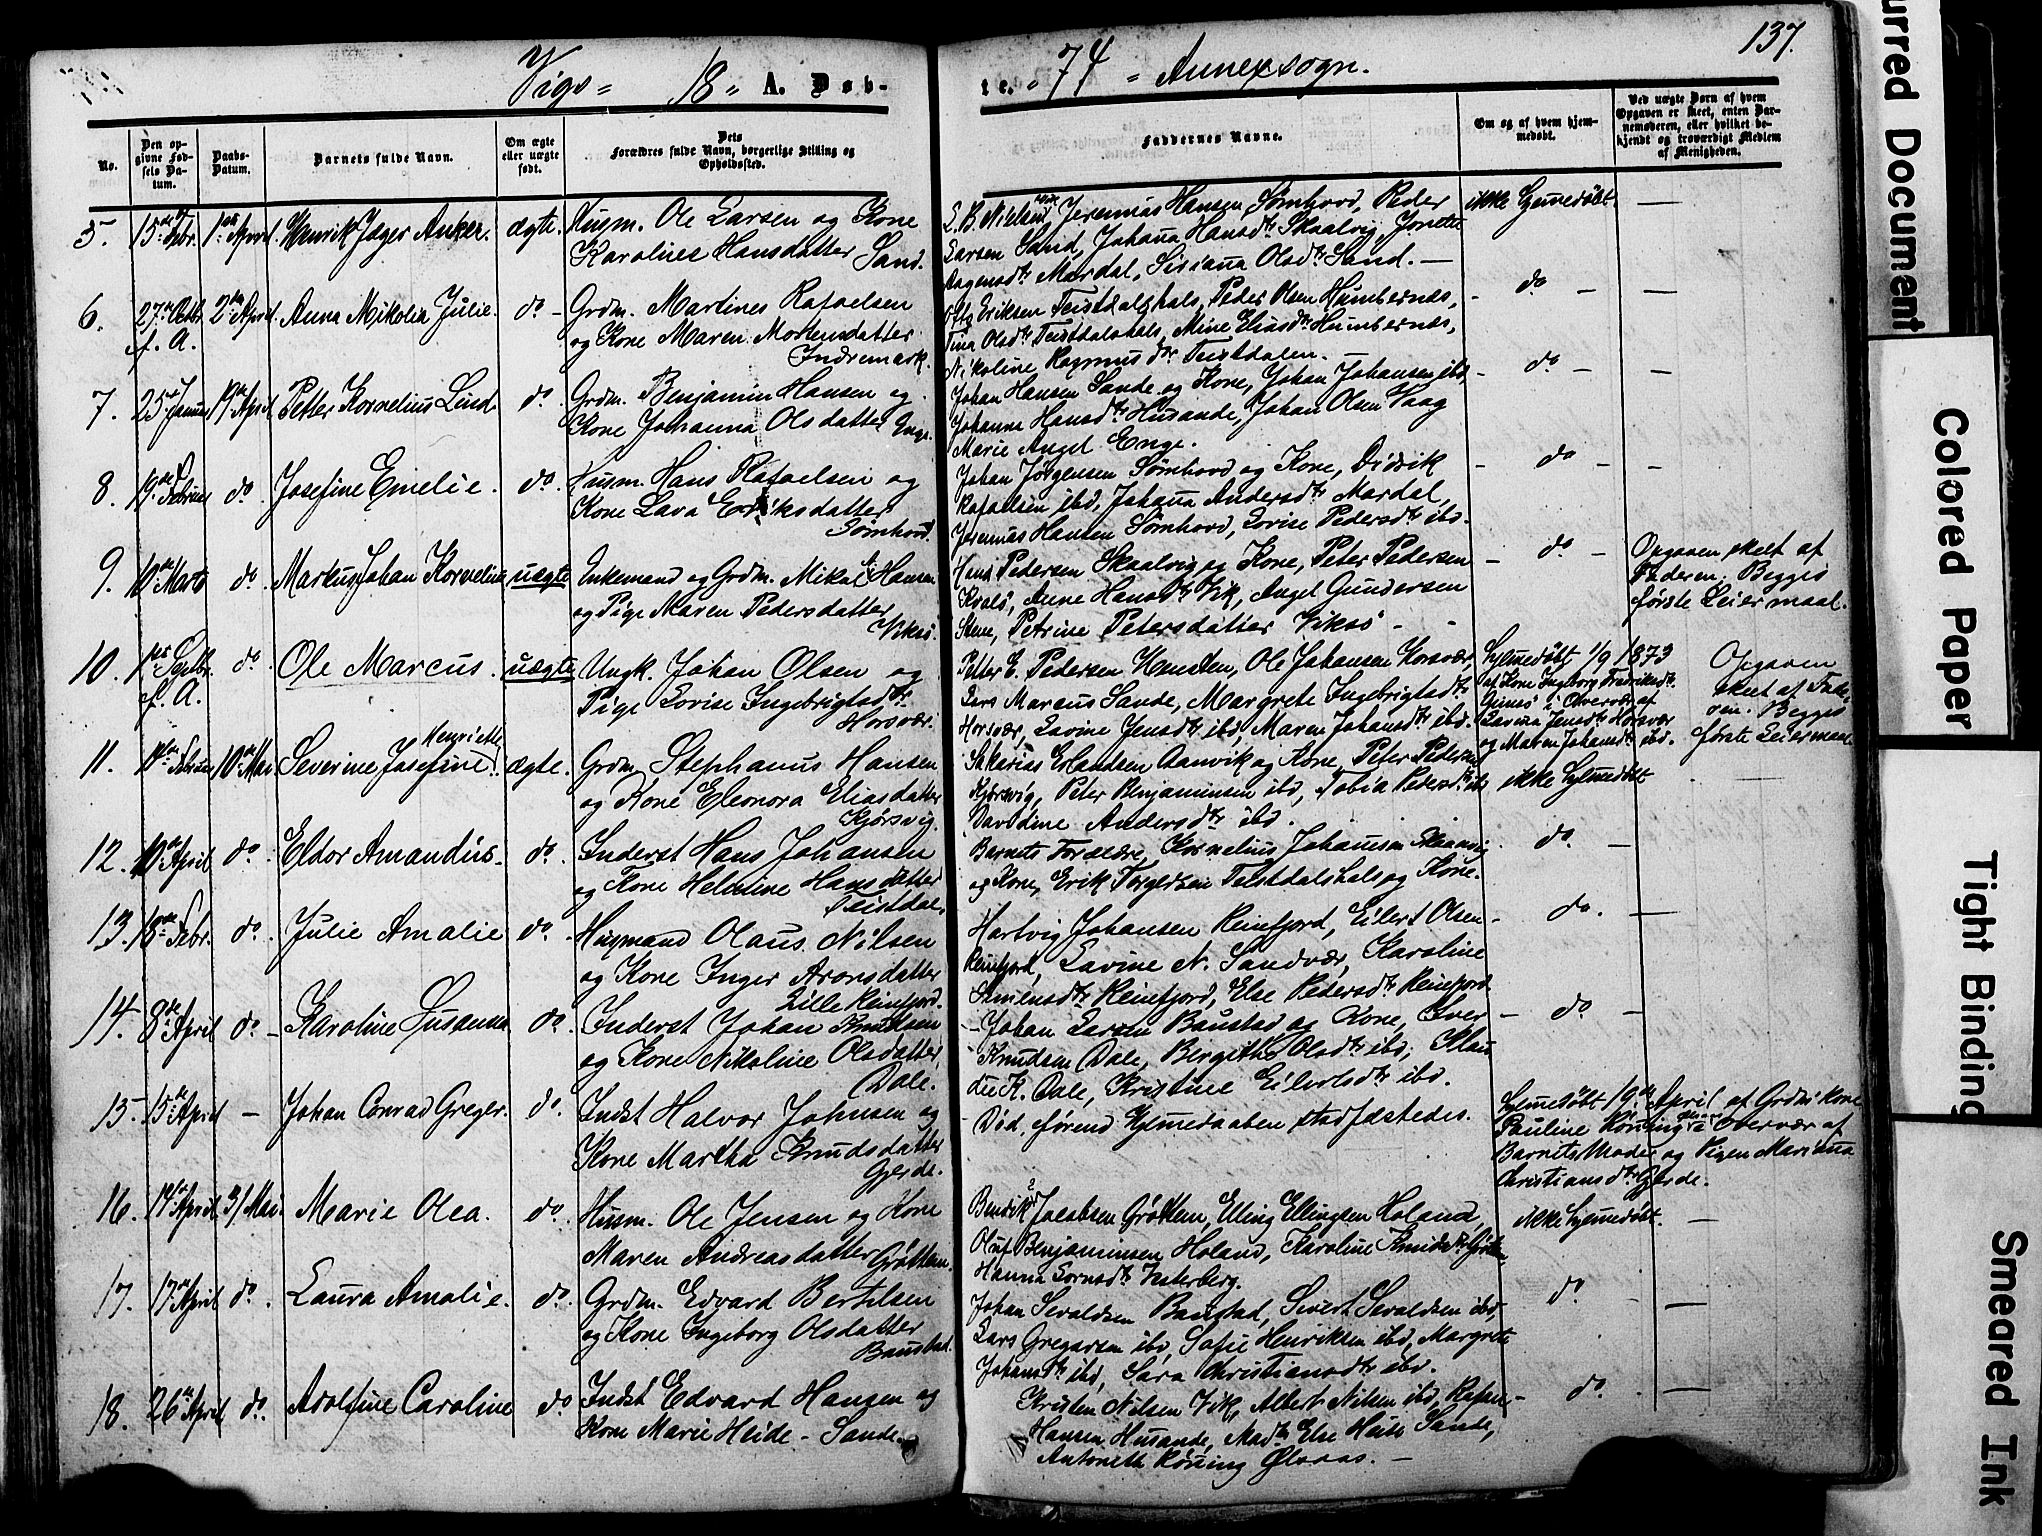 137.
Vigs- 18- A. Døb-
te. 74 - Annexsogn.
No.
Den op-
givne Fød-
sels Da-
tum.
Daabs-
Datum.
Barnets fulde Navn.
Om ægte
eller uægte
født.
Dets
Forældres fulde Navn, borgerlige Stilling og
Opholdssted.
Faddernes Navne.
Om og af hvem hjem-
medøbt.
Ved uægte Børn af hvem
Opgaven er skeet, enten Bar-
nemoderen, eller hvilket be-
kjendt og troværdigt Medlem
af Menigheden.
5. 15de Febr. 1ste April. Henrik Jæger Anker. ægte. Husm. Ole Larsen og Kone
Karoline Hansdatter Sand.
Jeremias Hansen Sømhovd, Peder
Larsen Sand, Johana Hansdtr Skaalvig, Jonette
Aagesdtr Mardal, Siriana Olsdtr Sand. —
ikke hjemedøbt. —
6. 27de Octbr. f. A. 2den April. Anna Mikolea Julie. do - Grdm. Martines Rafaelsen
og Kone Maren Mortensdatter
Indremark.
Eriksen Teistdalshals, Peder Olsen Humbernes,
Tina Olsdtr Teistdalshals, Mine Eliasdtr Humbernes,
Nikoline Rasmusdtr Teistdalen.
- do - —
7. 25de Januar 19de April Petter Kornelius Lind. do. Grdm. Benjamin Hansen og
Kone Johanna Olsdatter Enge.
Johan Hansen Sande og Kone, Johan Johansen ibd,
Johanna Hansdtr Husande, Johan Olsen Vaag
Marie Angel Enge.
- do - —
8. 19de Februar do. Josefine Emelie. do. Husm. Hans Rafaelsen og
Kone Lava Eriksdatter
Sømhovd.
Johan Jørgensen Sømhovd og Kone, Didrik
Rafaelsen ibd, Johana Andersdtr Mardal,
Jeremias Hansen Sømhovd, Lovise Pedersdtr ibd.
- do - —
9. 10de Marts do. Markus Johan Kornelius uægte Enkemand og Grdm. Mikal Hansen
og Pige Maren Pedersdatter
Viksø.
Hans Pedersen Skaalvig og Kone, Peter Pedersen
Kvalø, Anne Hansdtr Vik, Angel Gundersen
Stene, Petrine Petersdatter Viksø - -
- do - Opgaven skeet af
Faderen. Begges
første Leiermaal.
10. 1ste Septbr. f. A. do. Ole Marcus. uægte Ungk. Johan Olsen og
Pige Lovise Ingebrigtsdtr.
Horsvær.
Petter E. Pedersen Hmsten, Ole Johansen Horsvær,
Lars Marcus Sande, Margrete Ingebrigtsdtr
Horsvær, Lavine Jensdtr ibd, Maren Johansdtr ibd.
Hjemedøbt 1/9 1873
af Kone Ingeborg Fredriksdtr.
Gimsø i Overvær af
Lavina Jensdtr Horsvær
og Maren Johansdtr ibd.
Opgaven
skeet af Fade-
ren. Begges
første Leiermaal.
11. Februar 10de Mai Severine Josefine Henriette. ægte. Grdm. Stephanus Hansen
og Kone Eleonora Eliasdatter
Kjørsvig.
Sakarias Erlandsen Aanvik og Kone, Peter Pedersen
Kjørsvig, Peter Benjaminsen ibd, Tobia Pedersdtr ibd
Davodine Andersdtr ibd.
ikke hjemedøbt —
12. 10de April do. Eldor Amandus. do. Inderst Hans Johansen
og Kone Helmine Hansdatter
Teistdal.
Barnets Forældre, Kornelius Johansen Skaanvig
og Kone, Erik Torgersen Teistdalshals og Kone.
do. —
13. 15de Febr. do. Julie Amalie do. Husmand Olaus Nilsen
og Kone Inger Aronsdatter
Lille Reinfjord.
Hartvig Johansen Reinfjord, Eilert Olsen
Reinfjord, Lavine N. Sandvær, Karoline
Simensdtr Reinefjord, Else Pedersdtr Reinfjord
- do. —
14. 8de April do - Karoline Susanna do. Inderst Johan Knudsen
og Kone Nikoline Olsdatter
Dale.
- Johan Larsen Baustad og Kone, Iver
Knudsen Dale, Birgithe Olsdtr ibd, Klau
die K. Dale, Kristine Eilertsdtr ibd.
- do —
15. 15de April - Johan Conrad Greger. do. Indst Halvor Johnsen og
Kone Martha Knudsdatter
Gjerde.
- Død, førend Hjemedaaben stadfæstedes.
Hjemedøbt 19de April af Grdms kone
Pauline Køning i Overvær af
Barnets Moder og Pigen Mariana
Christiansdtr Gjerde.
16. 14de April 31 Mai. Marie Olea. do. Husm. Ole Jensen og Kone
Maren Andreasdatter Grøttem.
Bendik Jacobsen Grøttem, Elling Ellingsen Holand,
Oluf Benjaminsen Holand, Karoline Knudsdtr
Hanna Sorensdtr Vesterberg.
ikke hjemedøbt. —
17. 17de April do. Laura Amalie. do. Grdm. Edvard Bertilsen
og Kone Ingeborg Olsdatter
Baustad.
Johan Sevaldsen Baustad, Sivert Sevaldsen ibd,
Lars Gregersen ibd, Sofie Henriksen ibd, Margrete
Johansdtr ibd, Sara Christiansdtr ibd.
do. - —
18. 26de April do. Adolfine Caroline do Indst Edvard Hansen og
Kone Marie Heide - Sande.
Kristen Nilsen Vik, Albert Nilsen ibd,
Hansen Husande, Mad. Else Heide Sande,
Antonette Køning —
- do. —
urred Document
Colored Paper
Tight Binding
Smeared Ink